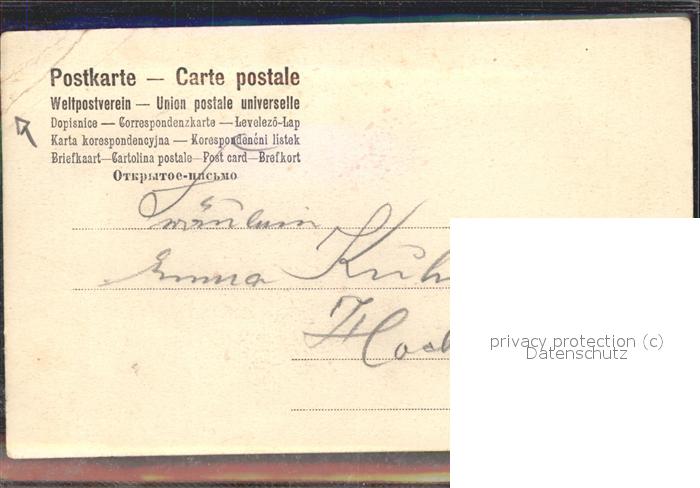 Postkarte — Carte postale
Weltpostverein — Union postale universelle
Dopisnice — Correspondenzkarte — Levelező-Lap
Karta korespondencyjna — Korespondenčni listek
Briefkaart—Cartolina postale—Post card—Brefkort
Открытое-письмо
Fräulein
Emma Küh
privacy protection (c)
Datenschutz